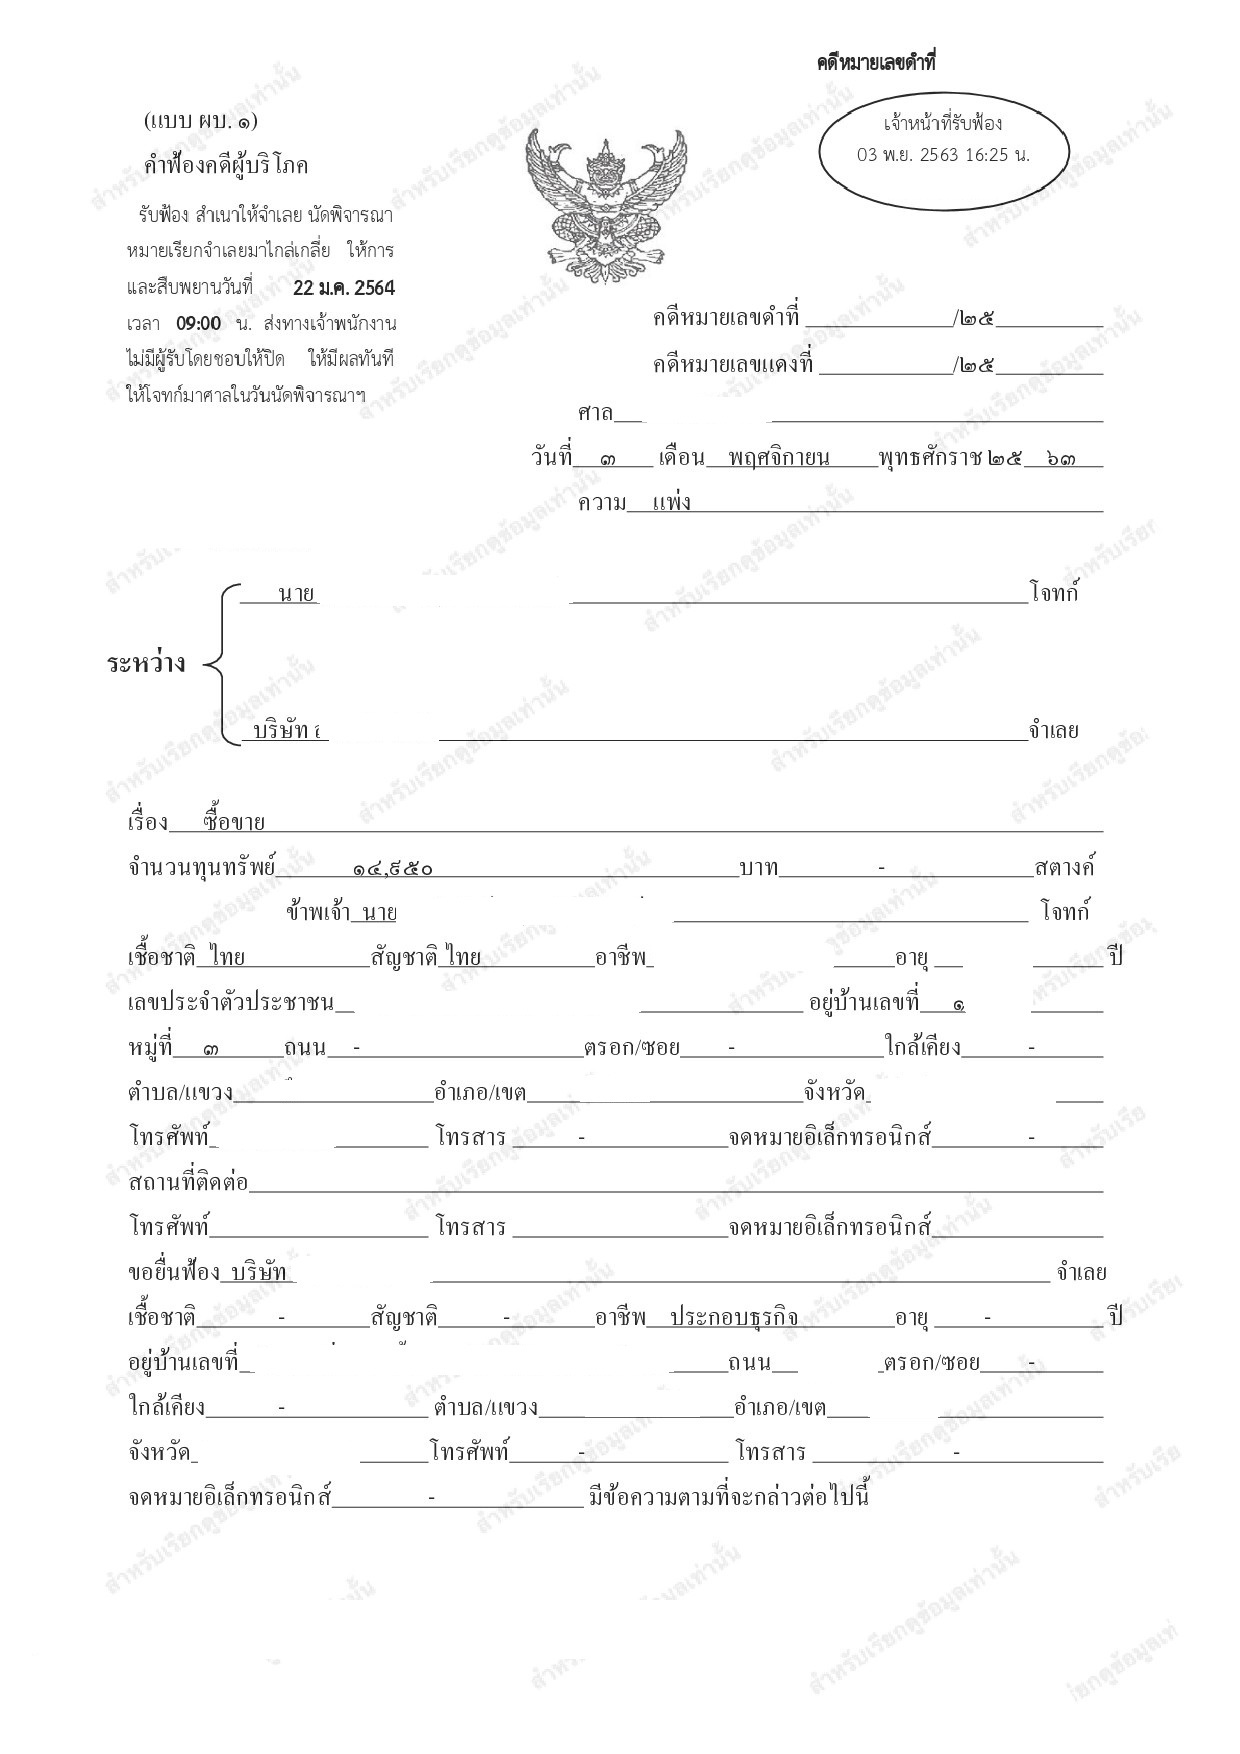 คดีหมายเลขดำที่
(แบบ ผบ. ๑)
คำฟ้องคดีผู้บริโภค
เจ้าหน้าที่รับฟ้อง
03 พ.ย. 2563 16:25 น.
รับฟ้อง สำเนาให้จำเลย นัดพิจารณา
หมายเรียกจำเลยมาไกล่เกลี่ย ให้การ
และสืบพยานวันที่ 22 ม.ค. 2564
เวลา 09:00 น. ส่งทางเจ้าพนักงาน
ไม่มีผู้รับโดยชอบให้ปิด ให้มีผลทันที
ให้โจทก์มาศาลในวันนัดพิจารณาฯ
คดีหมายเลขดำที่ /๒๕
คดีหมายเลขแดงที่ /๒๕
ศาล
วันที่ ๓ เดือน พฤศจิกายน พุทธศักราช ๒๕ ๖๓
ความ แพ่ง
นาย โจทก์
ระหว่าง
บริษัท จำเลย
เรื่อง ซื้อขาย
จำนวนทุนทรัพย์ ๑๔,๙๕๐ บาท - สตางค์
ข้าพเจ้า นาย โจทก์
เชื้อชาติ ไทย สัญชาติ ไทย อาชีพ อายุ ปี
เลขประจำตัวประชาชน อยู่บ้านเลขที่ ๑
หมู่ที่ ๓ ถนน - ตรอก/ซอย - ใกล้เคียง -
ตำบล/แขวง อำเภอ/เขต จังหวัด
โทรศัพท์ โทรสาร - จดหมายอิเล็กทรอนิกส์ -
สถานที่ติดต่อ
โทรศัพท์ โทรสาร จดหมายอิเล็กทรอนิกส์
ขอยื่นฟ้อง บริษัท จำเลย
เชื้อชาติ - สัญชาติ - อาชีพ ประกอบธุรกิจ อายุ - ปี
อยู่บ้านเลขที่ ถนน ตรอก/ซอย -
ใกล้เคียง - ตำบล/แขวง อำเภอ/เขต
จังหวัด โทรศัพท์ - โทรสาร -
จดหมายอิเล็กทรอนิกส์ - มีข้อความตามที่จะกล่าวต่อไปนี้
สำหรับเรียกดูข้อมูลเท่านั้น